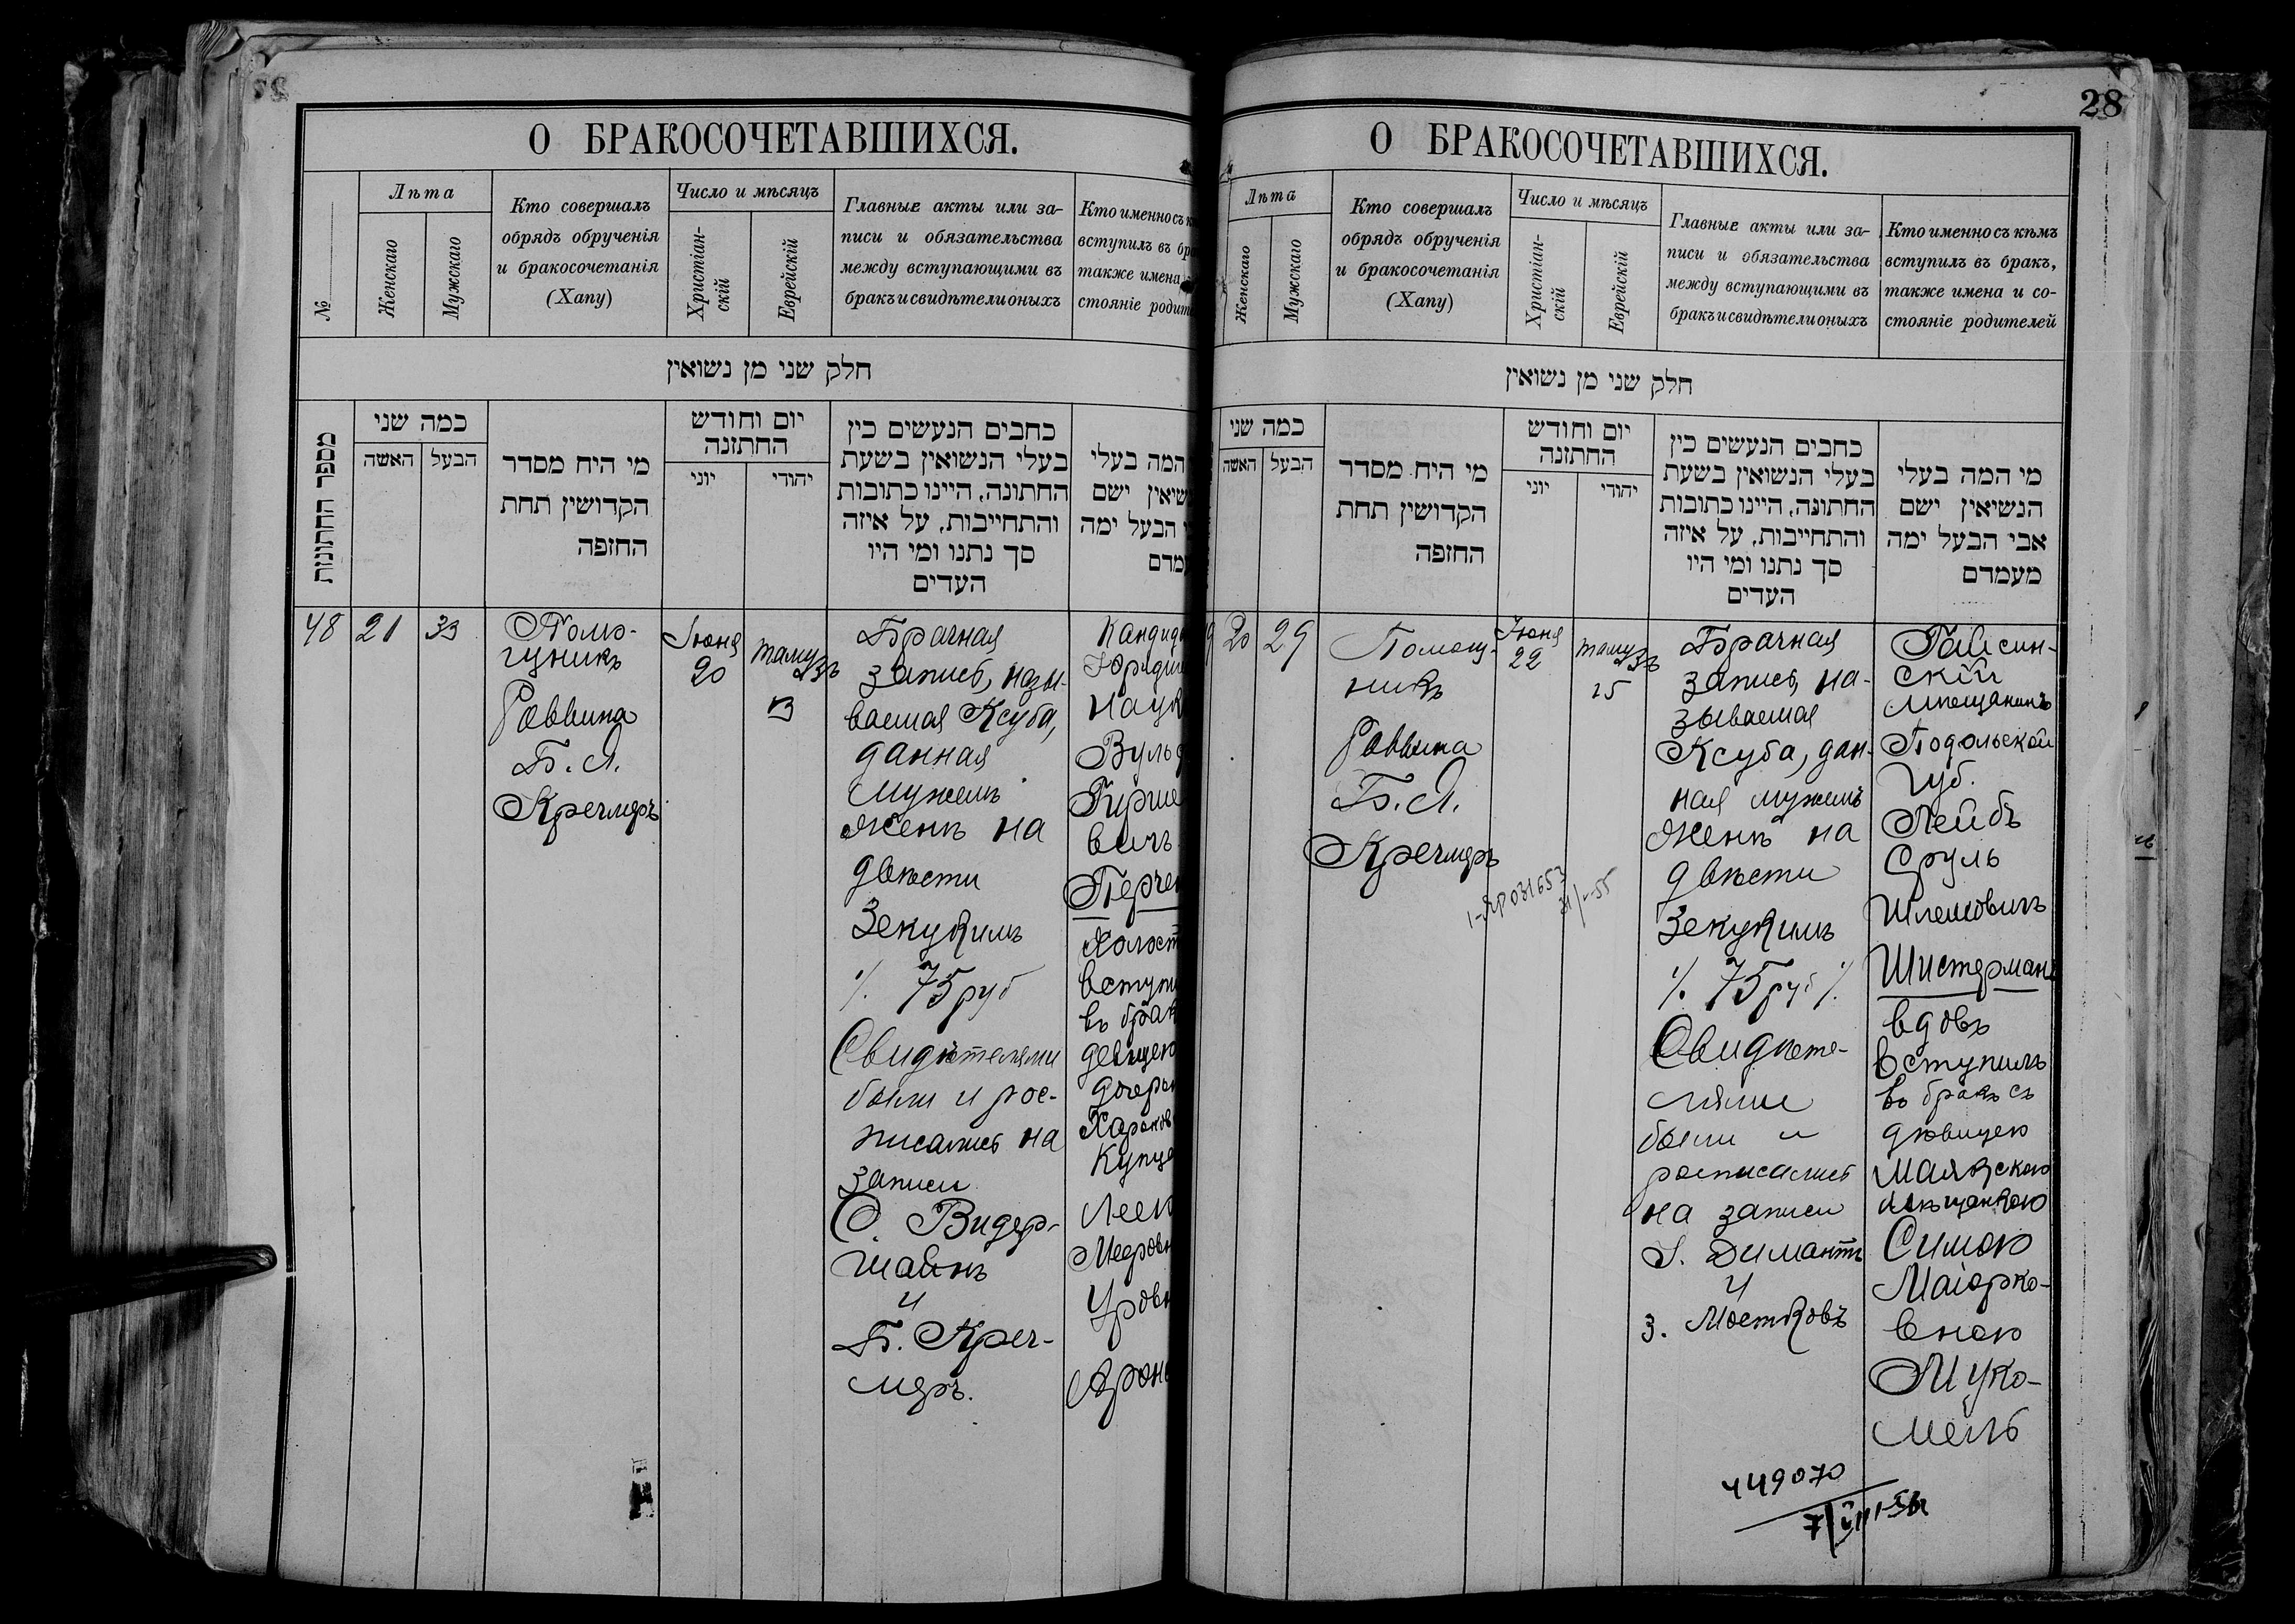 28
О БРАКОСОЧЕТАВШИХСЯ.
№
Лѣта
Женскаго
Мужскаго
Кто совершалъ
обрядъ обрученія
и бракосочетанія
(Хапу)
Число и мѣсяцъ
Христіан-
скій
Еврейскій
Главные акты или за-
писи и обязательства
между вступающими въ
бракъ и свидѣтели оныхъ
Кто именно съ к
вступилъ въ бра
также имена
стояніе родит
חלק שני מן נשואין
מספר החתונות
כמה שני
האשה
הבעל
מי היח מסדר
הקדושין תחת
החופה
יום וחודש
החתונה
יוני
יהודי
כתבים הנעשים בין
בעלי הנשואין בשעת
החתונה, היינו כתובות
והתחייבות, על איזה
סך נתנו ומי היו
העדים
המה בעלי
שיאין ישם
הבעל ימה
עמדם
48
21
33
Помо-
щникъ
Раввина
Б. Я.
Кречмеръ
Іюня
20
Тамузъ
13
Брачная
запись, назы-
ваемая Ксуба,
данная
мужемъ
женѣ на
двѣсти
Зекукимъ
٪ 75 руб
Свидѣтелями
были и рос-
писались на
записи
О. Видер-
шайнъ
и
Б. Креч-
меръ.
Кандид
Юридич
Наук
Вульф
Гирше
вичъ
Перче
Холост
вступи
въ брак
девицею
дочерью
Харьков
Купца
Леею
Мееровн
Уровн
Арон
О БРАКОСОЧЕТАВШИХСЯ.
Лѣта
Женскаго
Мужскаго
Кто совершалъ
обрядъ обрученія
и бракосочетанія
(Хапу)
Число и мѣсяцъ
Христіан-
скій
Еврейскій
Главные акты или за-
писи и обязательства
между вступающими въ
бракъ и свидѣтели оныхъ
Кто именно съ кѣмъ
вступилъ въ бракъ,
также имена и со-
стояніе родителей
חלק שני מן נשואין
כמה שני
האשה
הבעל
מי היח מסדר
הקדושין תחת
החופה
יום וחודש
החתונה
יוני
יהודי
כתבים הנעשים בין
בעלי הנשואין בשעת
החתונה, היינו כתובות
והתחייבות, על איזה
סך נתנו ומי היו
העדים
מי המה בעלי
הנשיאין ישם
אבי הבעל ימה
מעמדם
9
20
29
Помощ-
никъ
Раввина
Б. Я.
Кречмеръ
Іюня
22
Тамузъ
15
Брачная
запись, на-
зываемая
Ксуба, дан-
ная мужемъ
женѣ на
двѣсти
Зекукимъ
٪ 75 руб ٪
Свидѣте-
лями
были и
росписались
на записи
І. Димантъ
и
З. Мостковъ
Гайсин-
скій
мѣщанинъ
Подольской
Губ.
Лейбъ
Сруль
Шлемовичъ
Шистерманъ
вдовъ
вступилъ
въ бракъ съ
дѣвицею
Маякскою
мѣщанкою
Симою
Маіорко-
вною
Муко-
мель
449070